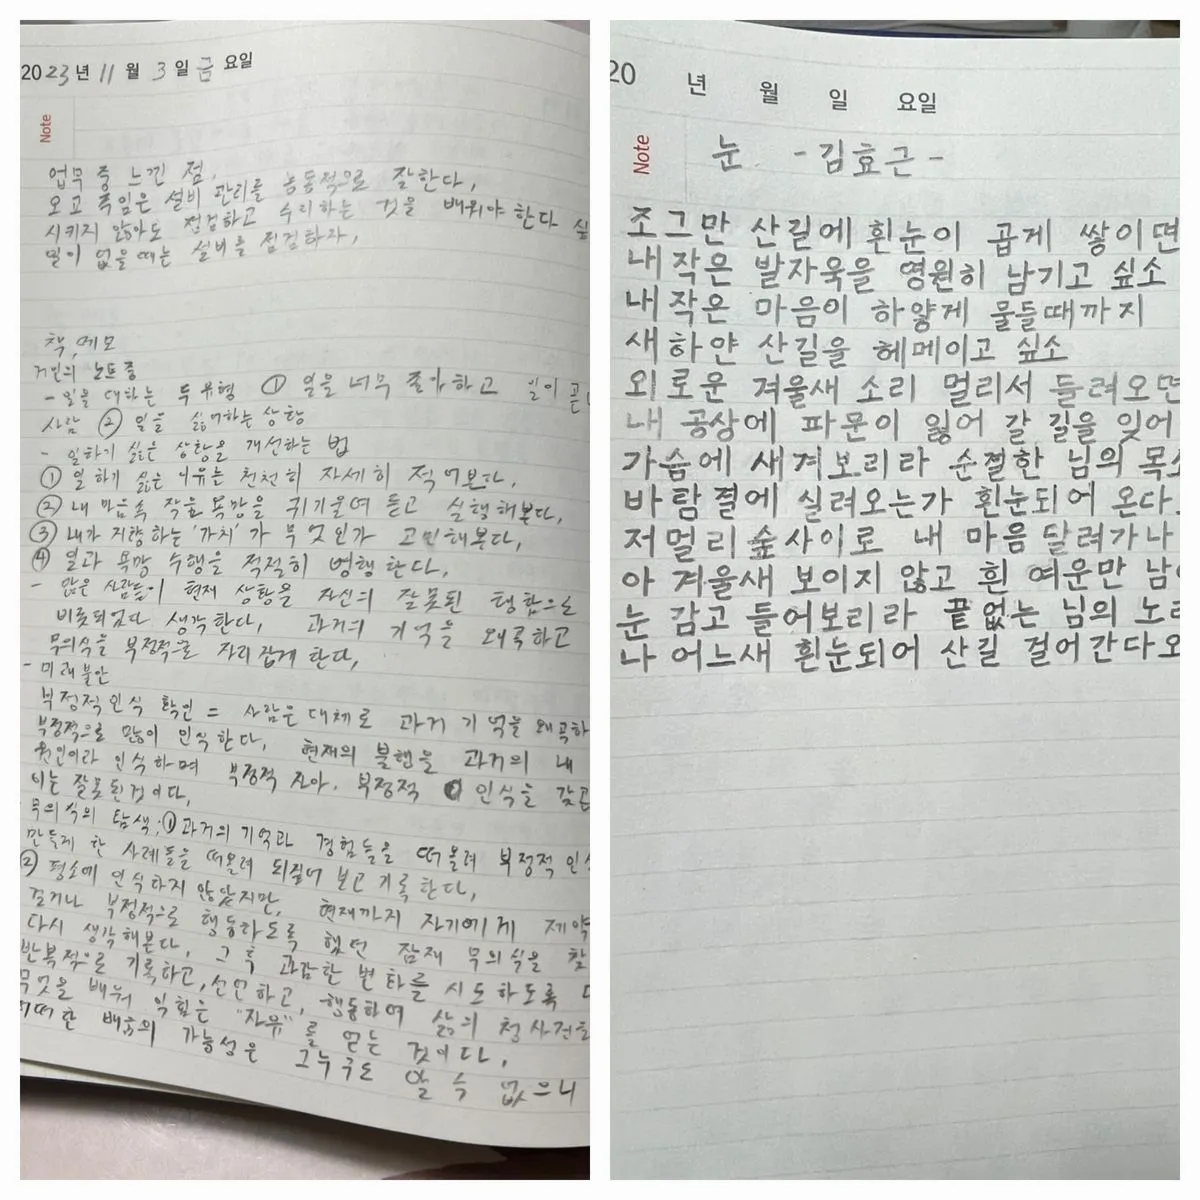 2023년 11월 3일 금요일
Note
업무 중 느낀 점,
오고 주임은 설비 관리를 능동적으로 잘한다,
시키지 않아도 점검하고 수리하는 것을 배워야 한다
일이 없을 때는 설비를 점검하자,
책,메모
거인의 노트 중
- 일을 대하는 두 유형 ① 일을 너무 좋아하고 일이 곧
사람 ② 일을 싫어하는 상황
- 일하기 싫은 상황을 개선하는 법
① 일 하기 싫은 이유는 천천히 자세히 적어본다,
② 내 마음속 작은 욕망을 귀기울여 듣고 실행해본다,
③ 내가 지향하는 '가치'가 무엇인가 고민해본다,
④ 일과 욕망 수행을 적절히 병행한다,
- 많은 사람들이 현재 상황을 자신의 잘못된 행함으로
비롯되었다 생각한다, 과거의 기억을 왜곡하고
무의식을 부정적으로 자리잡게 한다,
- 미래불안
부정적인식 확인 = 사람은 대체로 과거 기억을 왜곡하
부정적으로 많이 인식한다, 현재의 불행을 과거의 내
원인이라 인식하며 부정적 자아. 부정적 인식을 갖고
이는 잘못된것이다,
무의식의 탐색:① 과거의 기억과 경험들을 떠올려 부정적 인식
만들게 한 사례들을 떠올려 되짚어 보고 기록한다,
② 평소에 인식하지 않았지만, 현재까지 자기에게 제약
걸거나 부정적으로 행동하도록 했던 잠재 무의식을 찾
다시 생각해본다, 그 후 과감한 변화를 시도하도록
반복적으로 기록하고, 선언하고, 행동하여 삶의 청사진을
무엇을 배워 익힘은 "자유"를 얻는 것이다,
어떠한 배움의 가능성은 그누구도 알 수 없으니
20 년 월 일 요일
Note
눈 -김효근-
조그만 산길에 흰눈이 곱게 쌓이면
내 작은 발자욱을 영원히 남기고 싶소
내 작은 마음이 하얗게 물들때까지
새하얀 산길을 헤메이고 싶소
외로운 겨울새 소리 멀리서 들려오면
내 공상에 파문이 잃어 갈 길을 잊어
가슴에 새겨보리라 순결한 님의 목소
바람결에 실려오는가 흰눈되어 온다
저멀리 숲사이로 내 마음 달려가나
아 겨울새 보이지 않고 흰 여운만 남
눈 감고 들어보리라 끝없는 님의 노래
나 어느새 흰눈되어 산길 걸어간다오